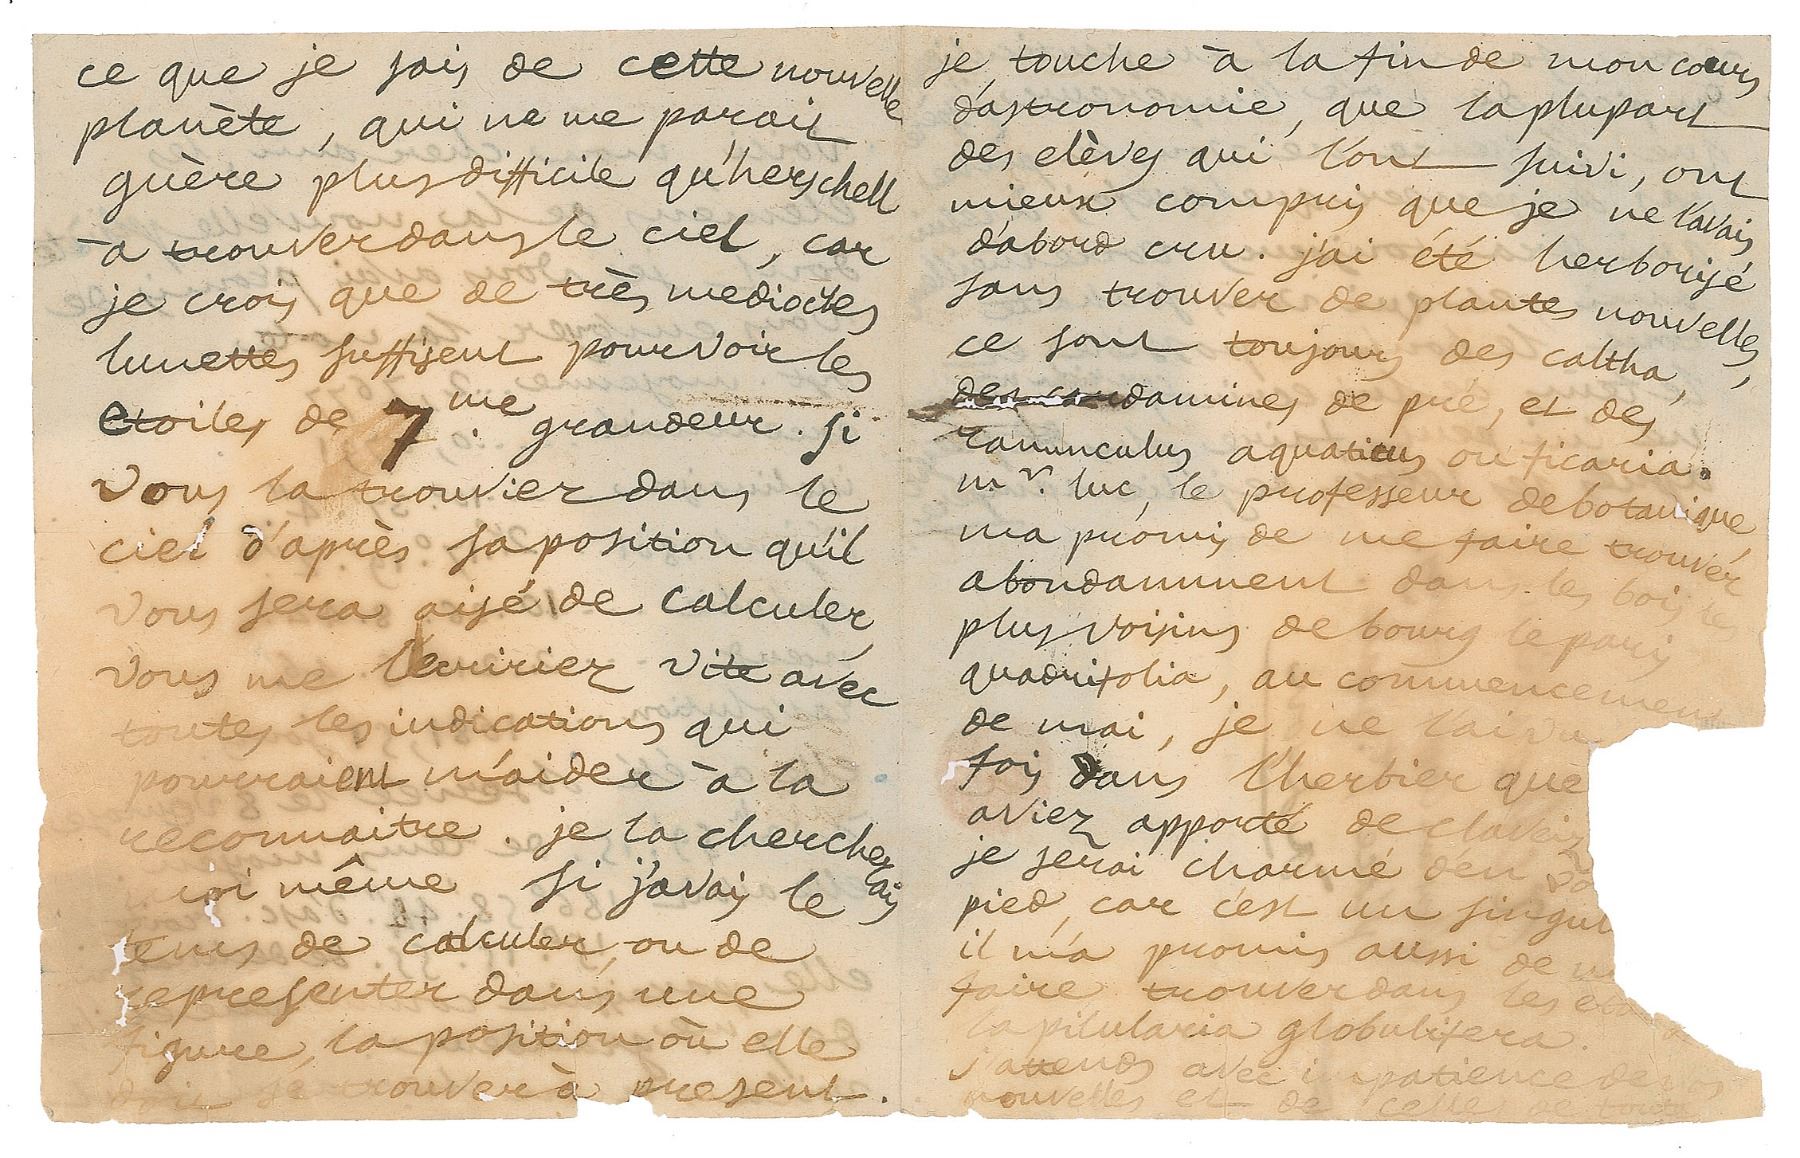 ce que je sais de cette nouvelle
planète, qui ne me parait
guère plus difficile qu'herschell
à trouver dans le ciel, car
je crois que de très mediocres
lunettes suffisent pour voir les
etoiles de 7me grandeur. si
vous la trouviez dans le
ciel d'après sa position qu'il
vous sera aisé de calculer,
vous me l'ecririez vite avec
toutes les indications qui
pourraient m'aider à la
reconnaitre. je la chercherais
moi même si j'avais le
tems de calculer, ou de
representer dans une
figure, la position où elle
doit se trouver à present.
je touche à la fin de mon cours
d'astronomie, que la plupart
des elèves qui l'ont suivi, ont
mieux compris que je ne l'avais
d'abord cru. j'ai été herborisé
sans trouver de plantes nouvelles,
ce sont toujours des caltha,
des cardamines de pré, et des
ranunculus aquaticus ou ficaria.
mr. luc, le professeur de botanique,
m'a promis de me faire trouver
abondamment dans les bois les
plus voisins de bourg le paris
quadrifolia, au commencement
de mai, je ne l'ai vu
fois dans l'herbier que
aviez apporté de claveiz
je serai charmé d'en
pied, car c'est un singul
il m'a promis aussi de m
faire trouver dans les
la pilularia globulifera.
j'attends avec impatience de vos
nouvelles et de celles de toute